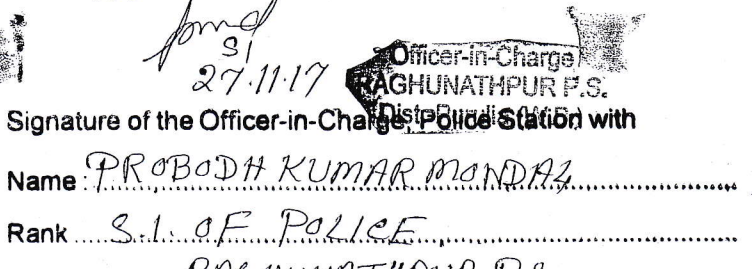 SI
27.11.17
Officer-in-Charge
RAGHUNATHPUR P.S.
Dist-Purulia (W.B.)
Signature of the Officer-in-Charge, Police Station with
Name : PROBODH KUMAR MONDAL
Rank S.I. OF POLICE
RAGHUNATHPUR P.S.